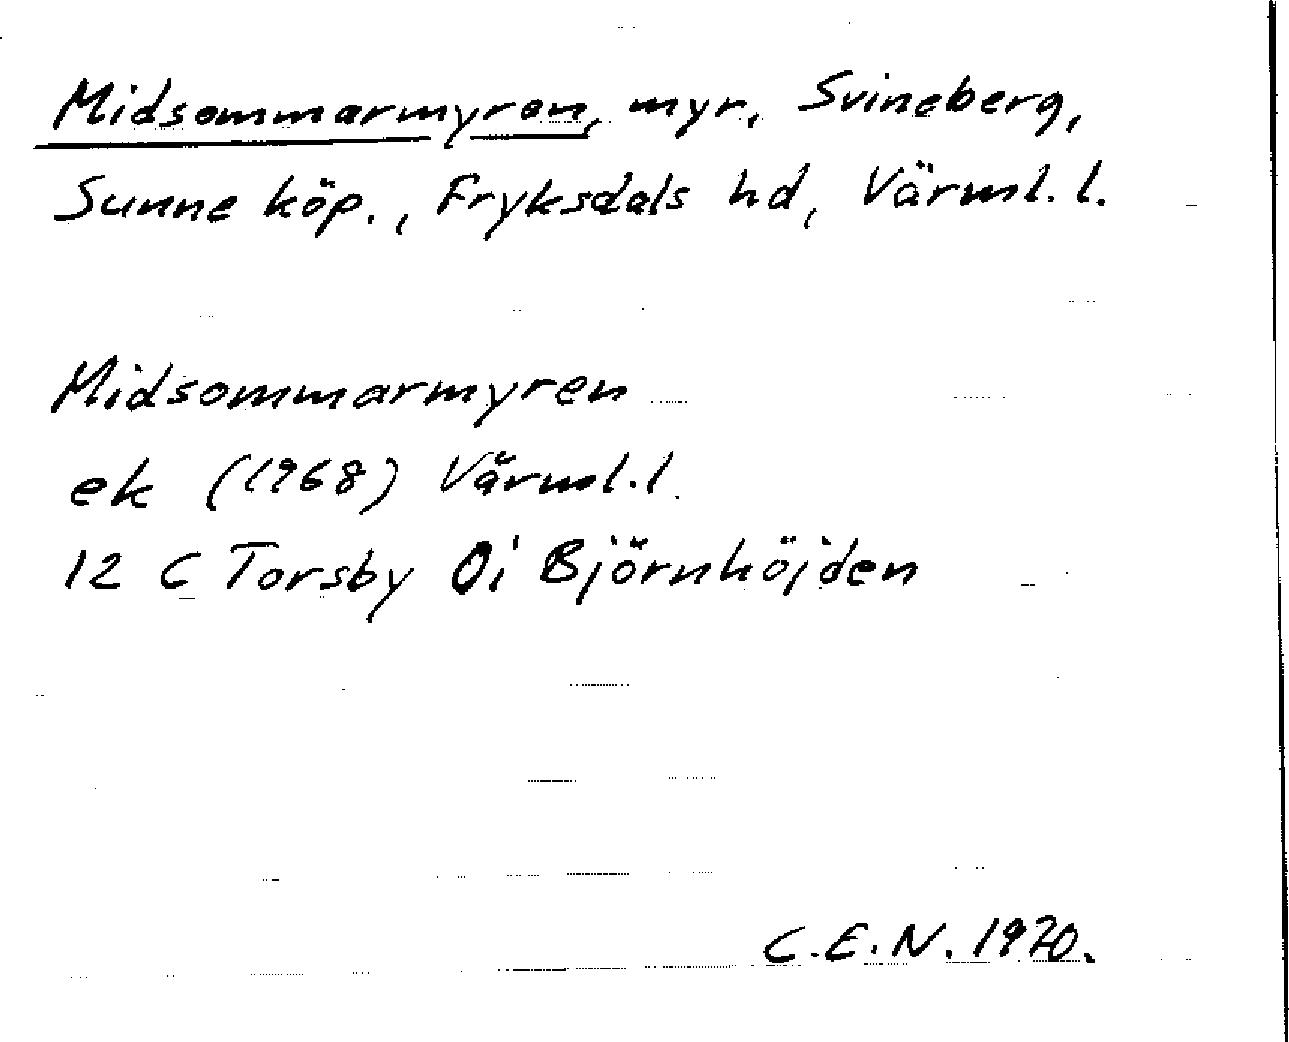 Midsommarmyren, myr, Svineberg,
Sunne köp., Fryksdals hd, Värml. l.
Midsommarmyren
ek (1968) Värml. l.
12 C Torsby 0i Björnhöjden
C.E.N. 1970.